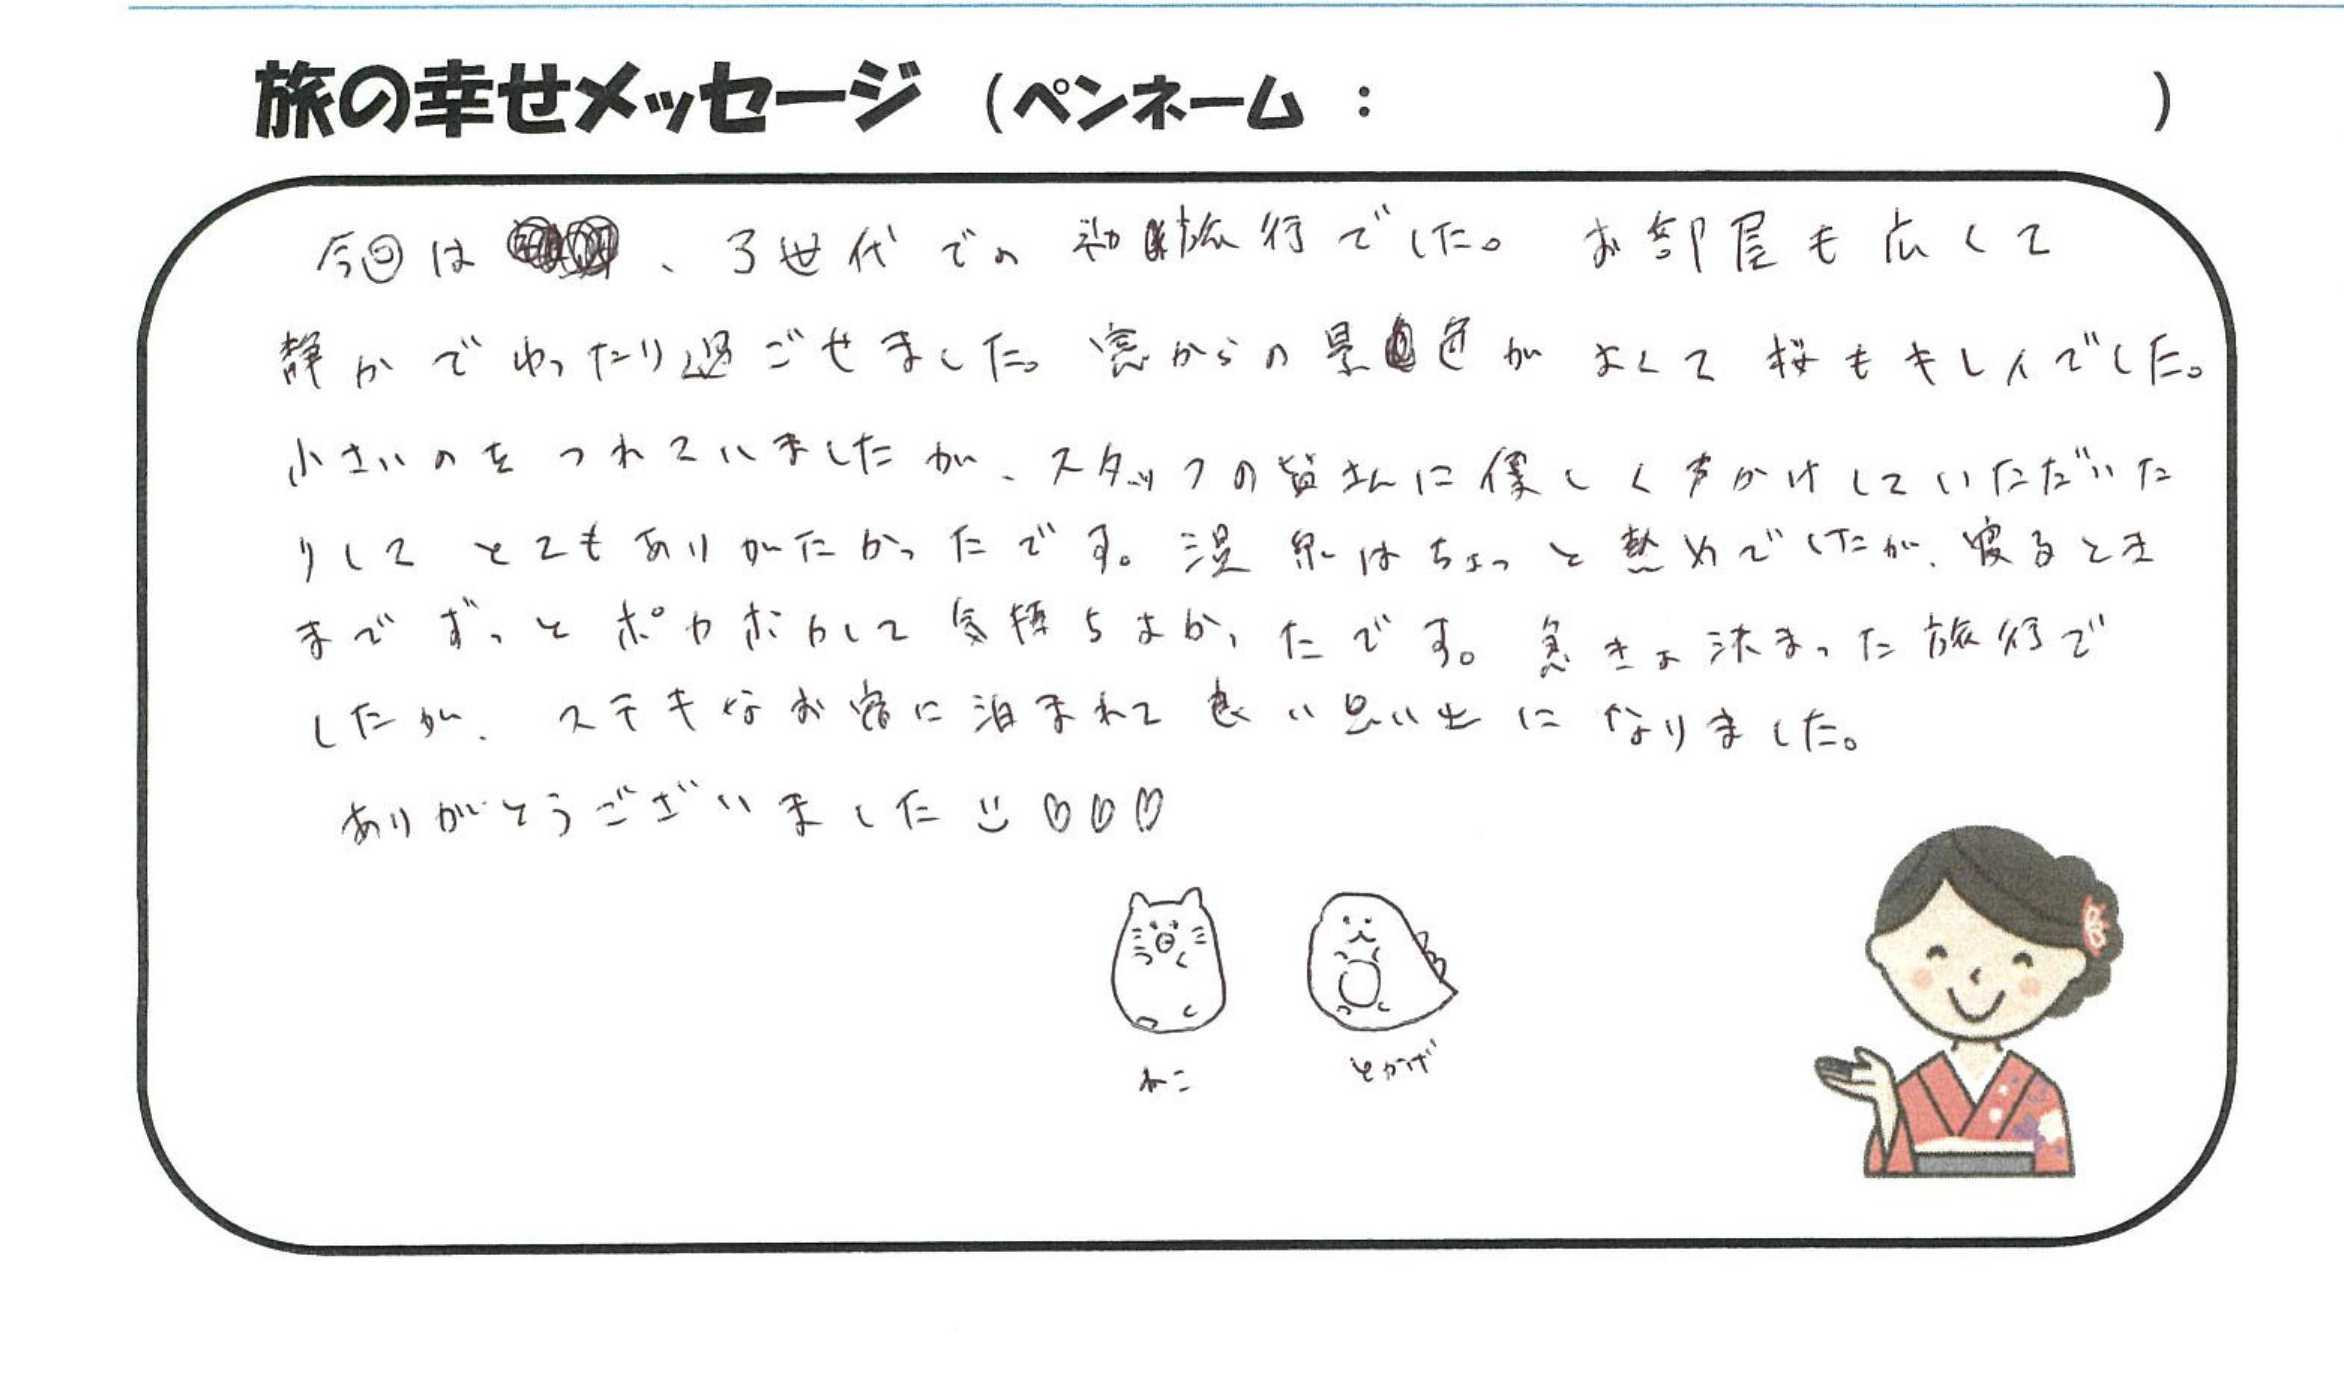 旅の幸せメッセージ (ペンネーム : )
今回は 、3世代での初旅行でした。お部屋も広くて
静かでゆったり過ごせました。窓からの景色がよくて桜もキレイでした。
小さいのをつれていましたが、スタッフの皆さんに優しく声かけしていただいた
りしてとてもありがたかったです。温泉はちょっと熱めでしたが、寝るとき
までずっとポカポカして気持ちよかったです。急きょ決まった旅行で
したが、ステキなお宿に泊まれて良い思い出になりました。
ありがとうございました
ねこ とかげ